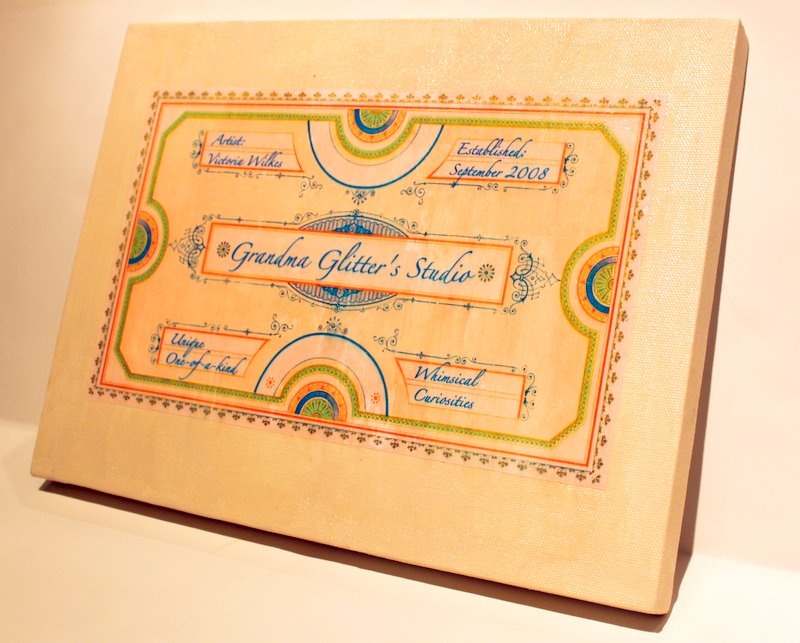 Artist:
Victoria Wilkes
Established:
September 2008
Grandma Glitter's Studio
Unique
One-of-a-kind
Whimsical
Curiosities